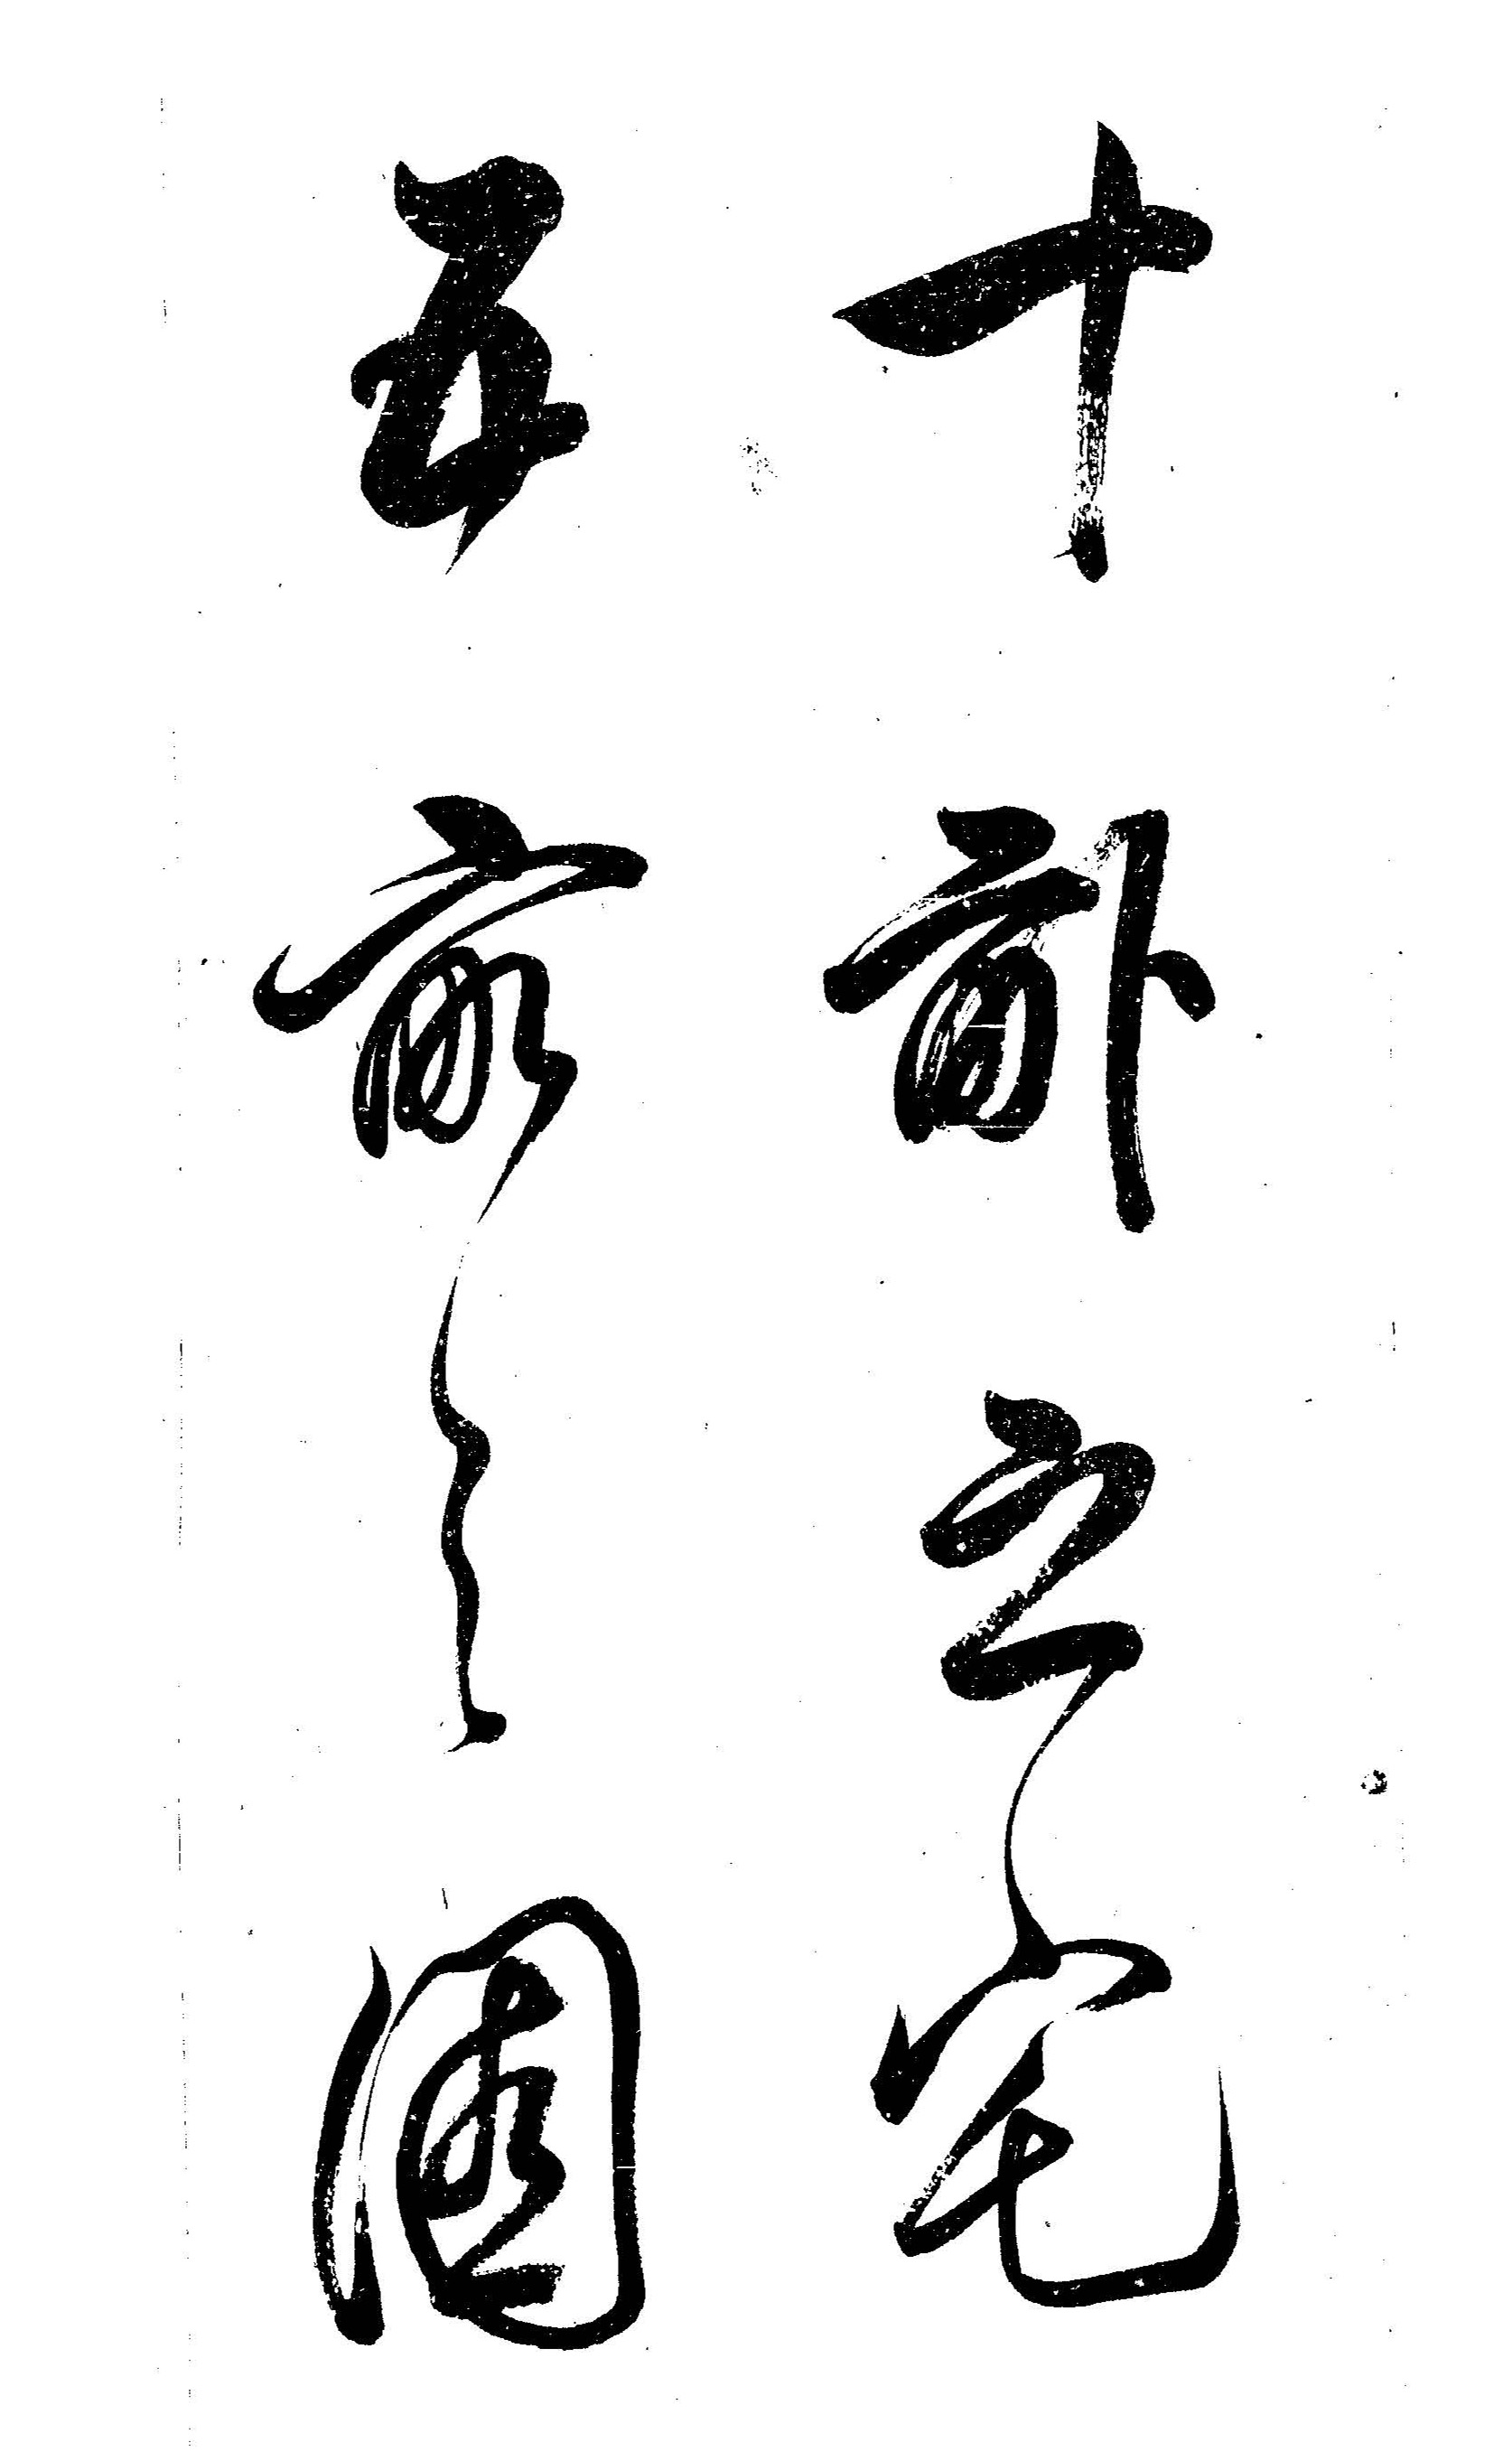 十畝之宅
五畝之園